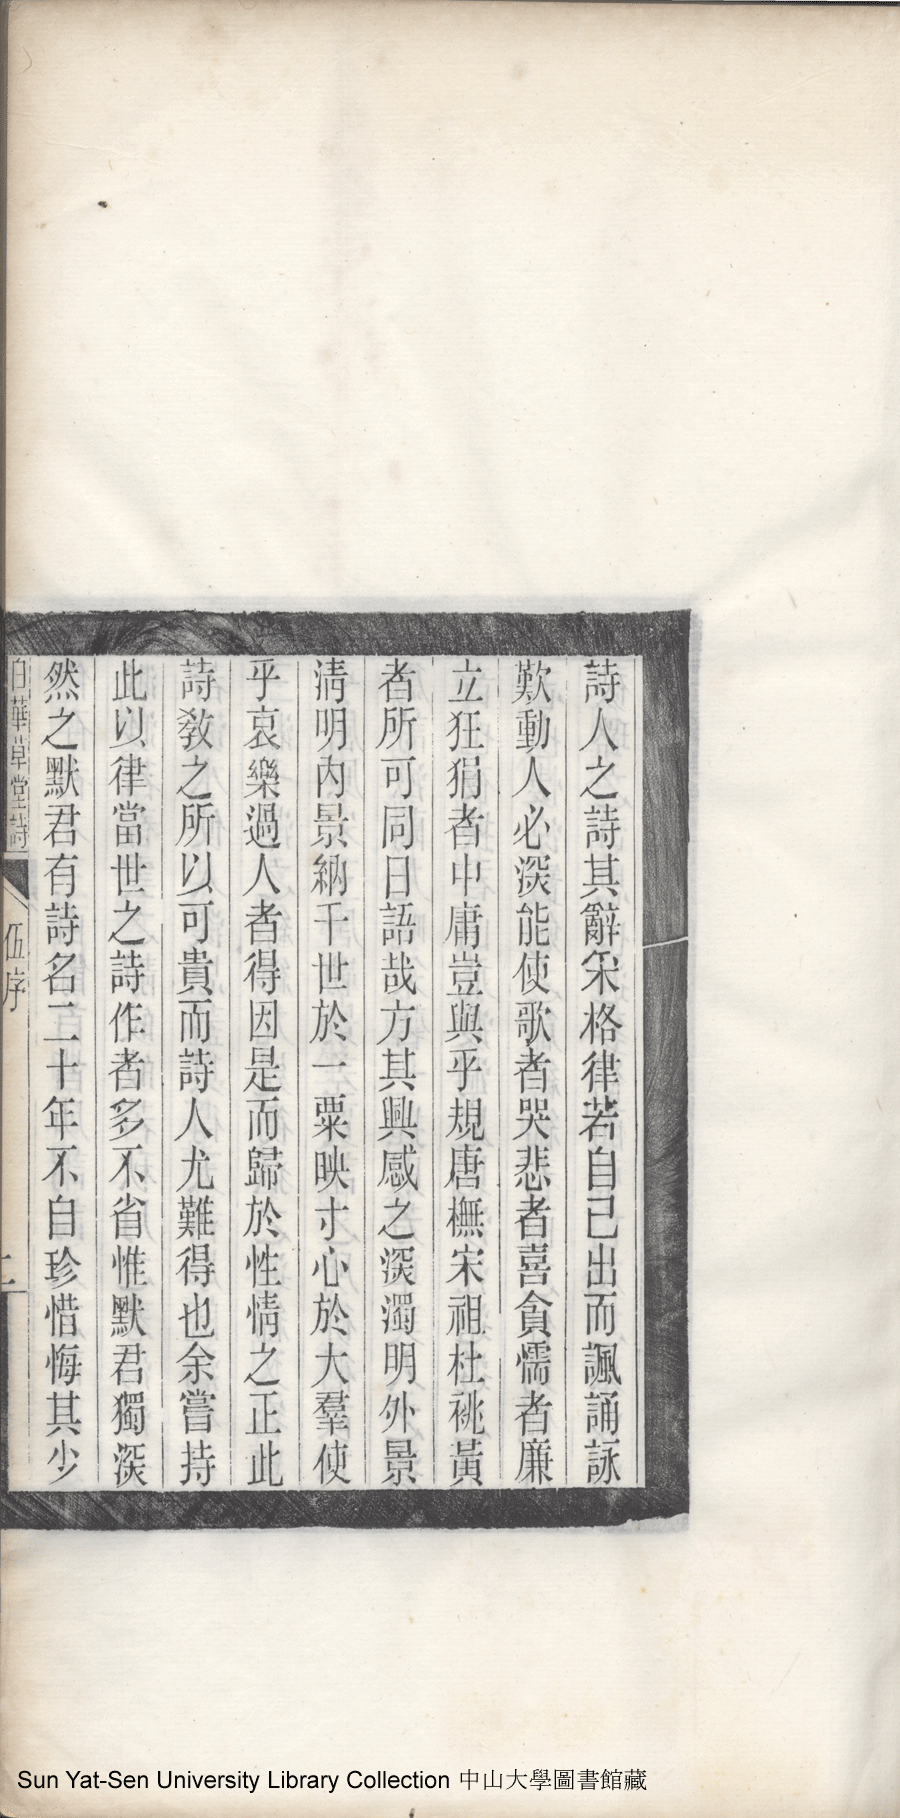 詩人之詩其辭采格律若自己出而諷誦詠
歎動人必深能使歌者哭悲者喜貪懦者廉
立狂狷者中庸豈與乎規唐橅宋祖杜祧黃
者所可同日語哉方其興感之深濁明外景
淸明內景納千世於一粟映寸心於大羣使
乎哀樂過人者得因是而歸於性情之正此
詩敎之所以可貴而詩人尤難得也余嘗持
此以律當世之詩作者多不省惟默君獨深
然之默君有詩名二十年不自珍惜悔其少
白華草堂詩
伍序
二
Sun Yat-Sen University Library Collection 中山大學圖書館藏